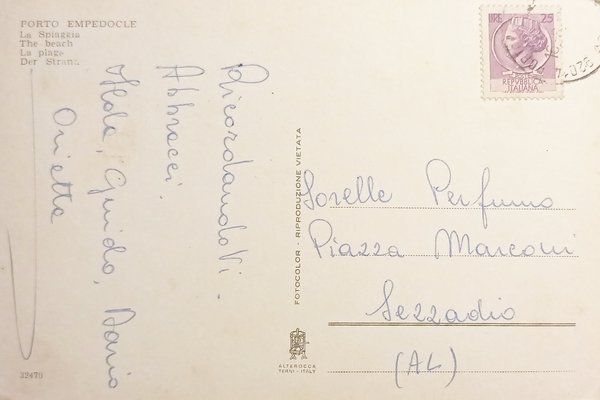 PORTO EMPEDOCLE
La Spiaggia
The beach
La plage
Der Strand
LIRE 25
POSTE
REPUBBLICA
ITALIANA
RicordandoVi.
Abbracci.
Ilda, Guido, Dario
Orietta
FOTOCOLOR - RIPRODUZIONE VIETATA
Sorelle Perfumo
Piazza Marconi
Sezzadio
(AL)
ALTEROCCA
TERNI - ITALY
32479